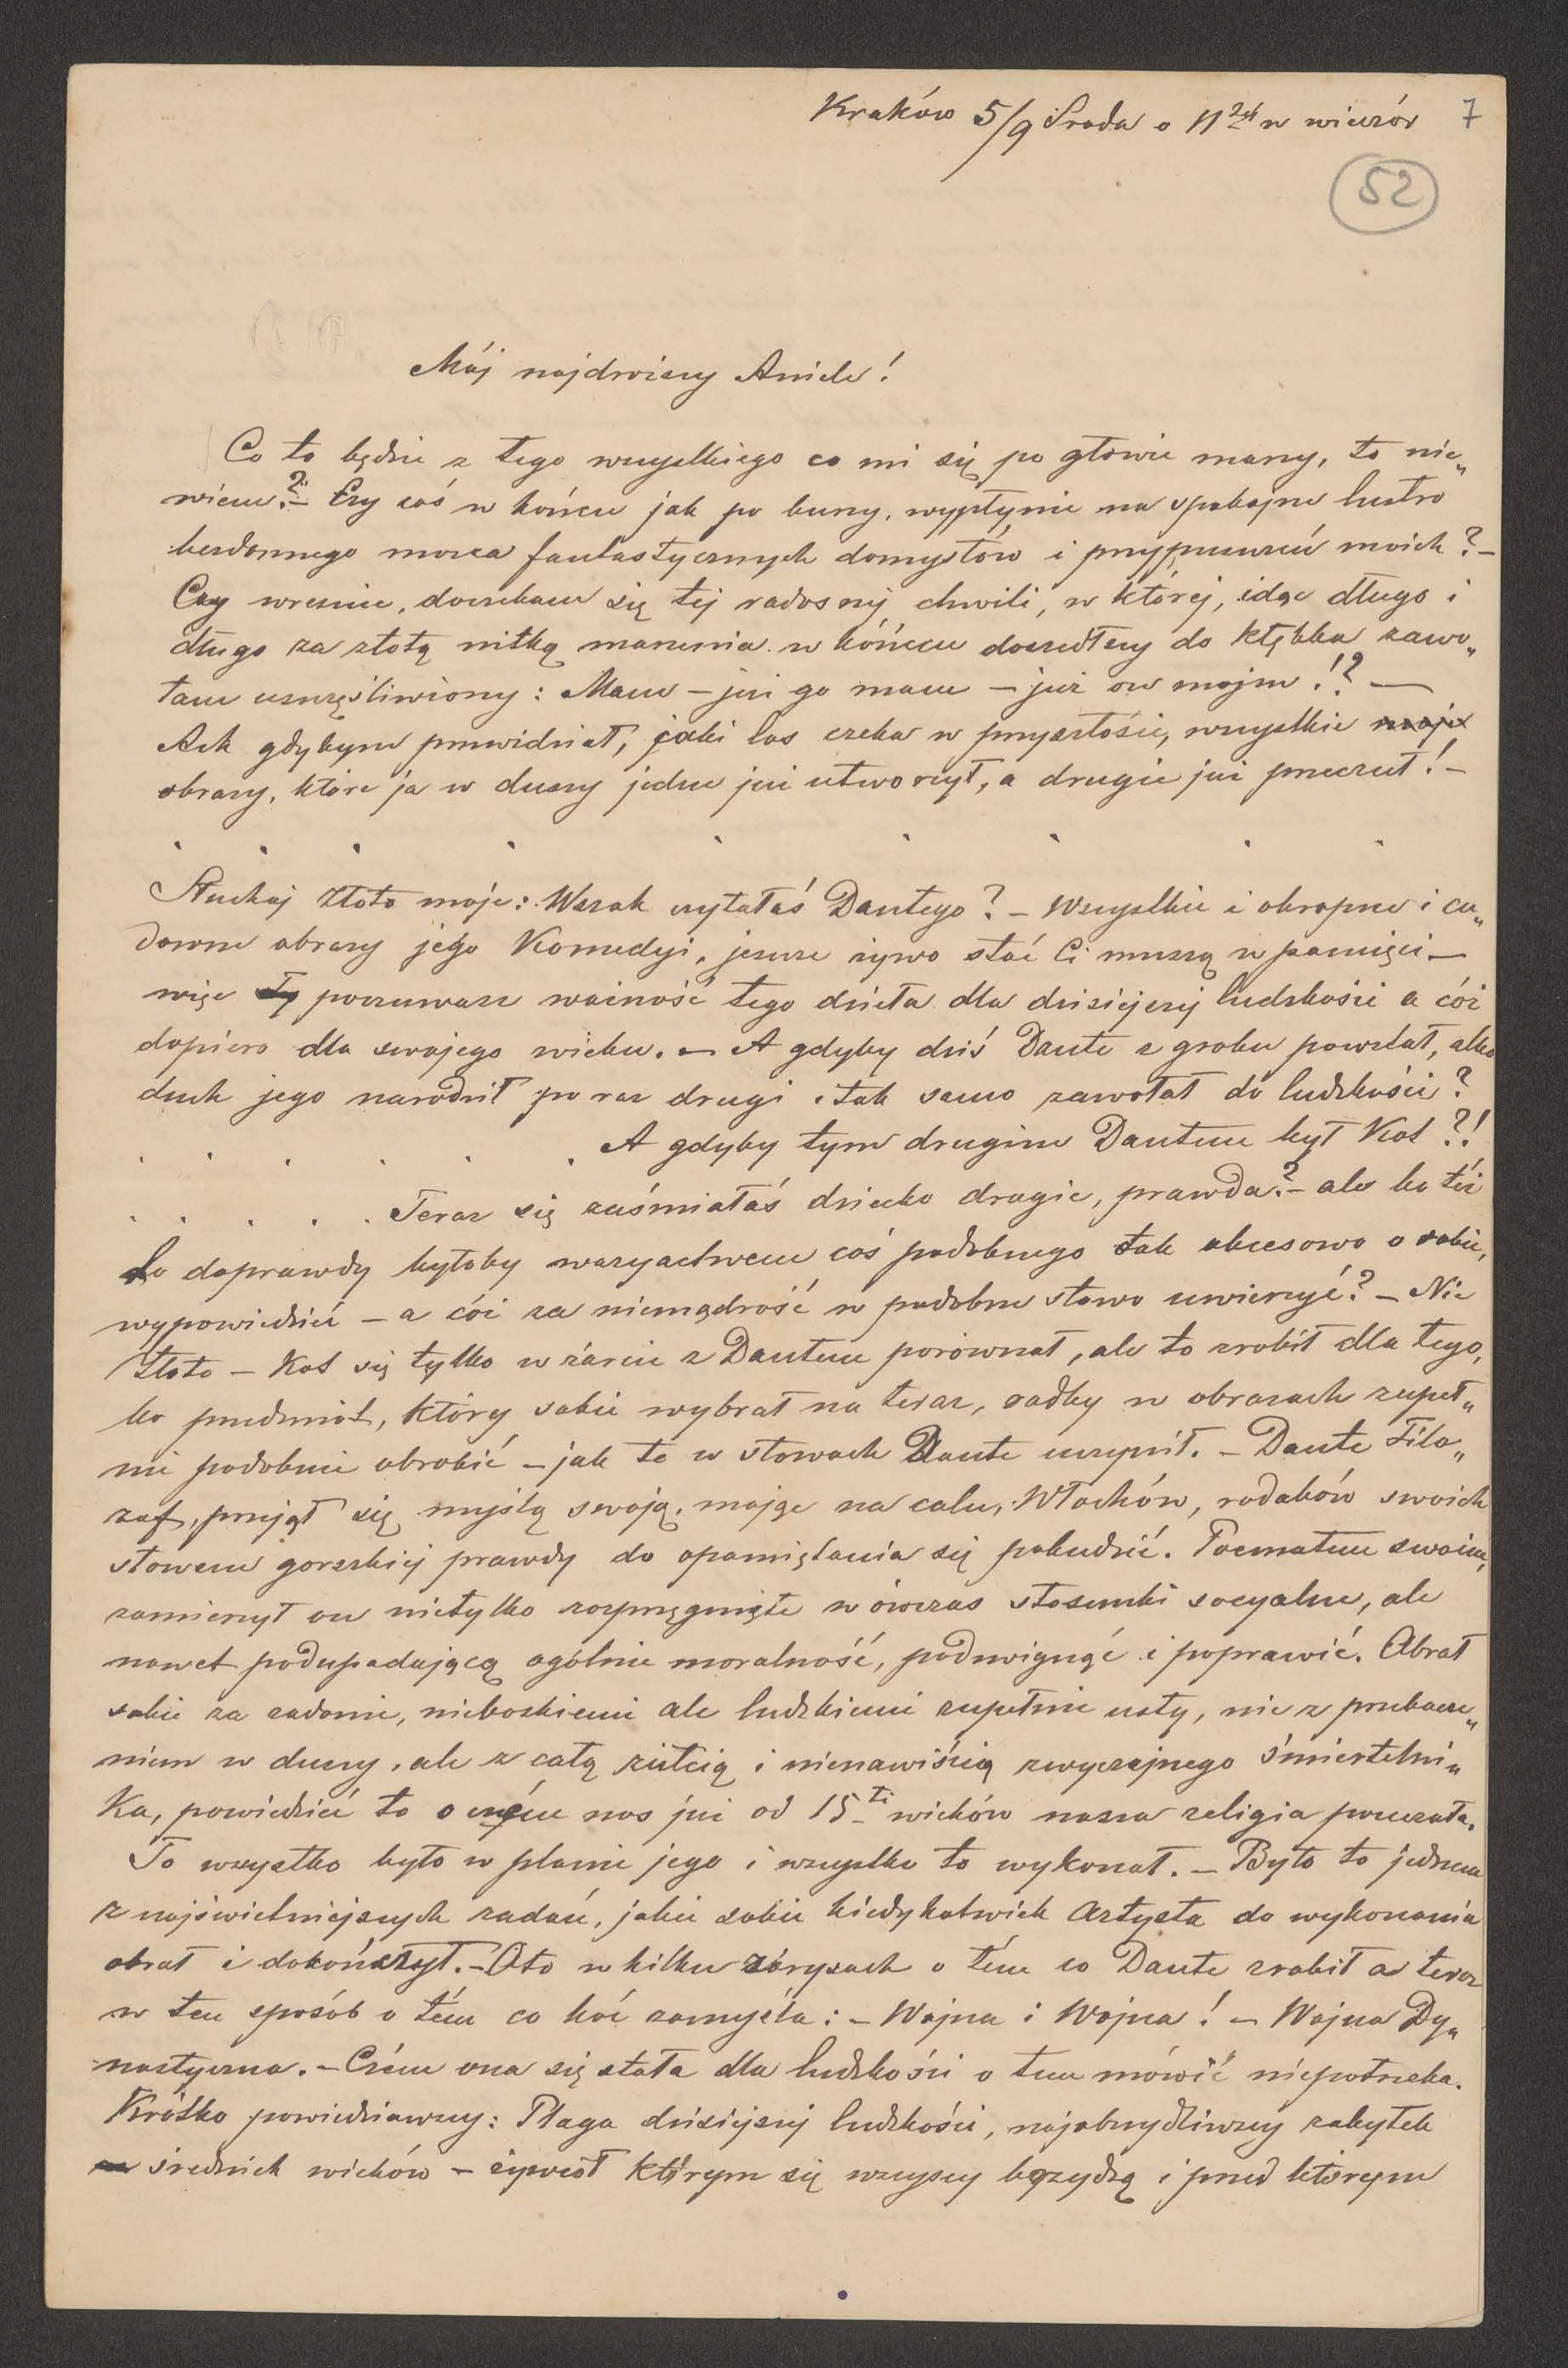 Kraków 5/9 Środa o 11tej w wieczór 7
52
Mój najdroższy Aniele!
Co to będzie z tego wszystkiego co mi się po głowie marzy, to nie„
wiem? – Czy coś w końcu jak po burzy, wypłynie na spokojne lustro
bezdonnego morza fantastycznych domysłów i przypuszczeń moich? –
Czy wreszcie, doczekam się tej radosnej chwili, w której, idąc długo i
długo za złotą nitką marzenia w końcu doszedłszy do kłębka zawo„
łam uszczęśliwiony: Mam – już go mam – już on mojm!? —
Ach gdybym przewidział, jaki los czeka w przyszłości, wszystkie moje
obrazy, które ja w duszy jedne już utworzył, a drugie już przeczuł! –
. . . . . . . . .
Słuchaj złoto moje: Wszak czytałaś Dantego? – Wszystkie i okropne i cu„
downe obrazy jego Komedyi, jeszcze żywo stać Ci muszą w pamięci –
więc Ty poczuwasz ważność tego dzieła dla dzisiejszej ludzkości a cóż
dopiéro dla swojego wieku. – A gdyby dziś Dante z grobu powstał, albo
duch jego narodził po raz drugi i tak samo zawołał do ludzkości?
. . . . . . A gdyby tym drugim Dantem był Kot?!
. . . . . Teraz się zaśmiałaś dziecko drogie, prawda? – ale bo też
to doprawdy byłoby waryactwem coś podobnego tak obcesowo o sobie,
wypowiedzieć – a cóż za niemądrość w podobne słowo uwierzyć? – Nie
złoto – Kot się tylko w żarcie z Dantem porównał, ale to zrobił dla tego,
bo przedmiot, który sobie wybrał na teraz, radby w obrazach zupeł„
nie podobnie obrobić – jak to w słowach Dante uczynił. – Dante Filo„
zof, przejął się myślą swoją, mając na celu, Włochów, rodaków swoich
słowem gorzkiej prawdy do opamiętania się pobudzić. Poematem swoim,
zamierzył on nietylko rozprzęgnięte wówczas stosunki socyalne, ale
nawet podupadającą ogólnie moralność, podzwignąć i poprawić. Obrał
sobie za zadanie, nieboskiemi ale ludzkiemi zupełnie usty, nie z przebacze„
niem w duszy, ale z całą żółcią i nienawiścią zwyczajnego śmiertelni„
ka, powiedzieć to o czém nas już od 15ti wieków nasza religia pouczała.
To wszystko było w planie jego i wszystko to wykonał. – Było to jednem
z najświetniejszych zadań, jakie sobie kiedykolwiek Artysta do wykonania
obrał i dokończył. – Oto w kilku zarysach o tém co Dante zrobił a teraz
w ten sposób o tém co koć zamyśla: – Wojna i Wojna! – Wojna Dy„
nastyczna. – Czém ona się stała dla ludzkości o tem mówić niepotrzeba.
Krótko powiedziawszy: Plaga dzisiejszej ludzkości, najobrzydliwszy zabytek
średnich wieków – żywioł którym się wszyscy brzydzą i przed którym